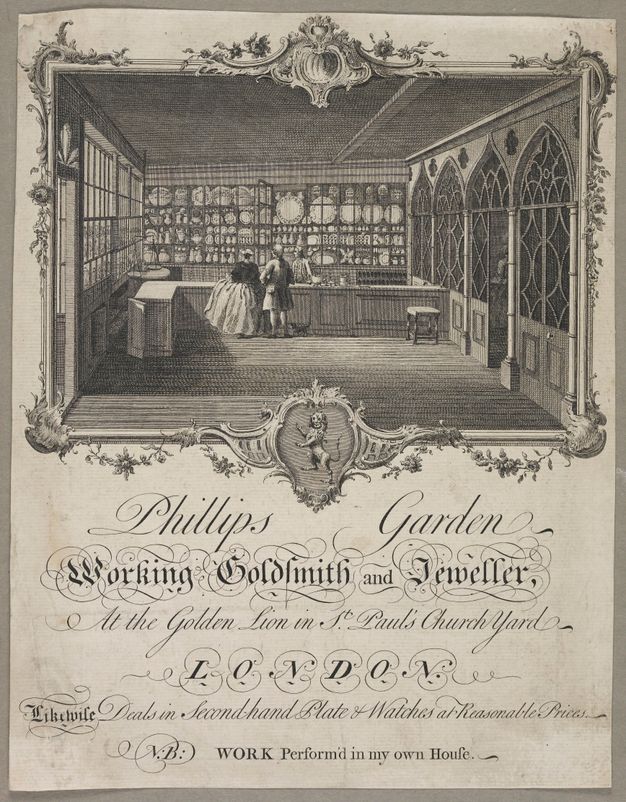 Phillips Garden
Working Goldſmith and Jeweller,
At the Golden Lion in S.t Paul's Church Yard
LONDON.
Likewiſe Deals in Second-hand Plate & Watches at Reasonable Prices.
N.B: WORK Perform'd in my own Houſe.